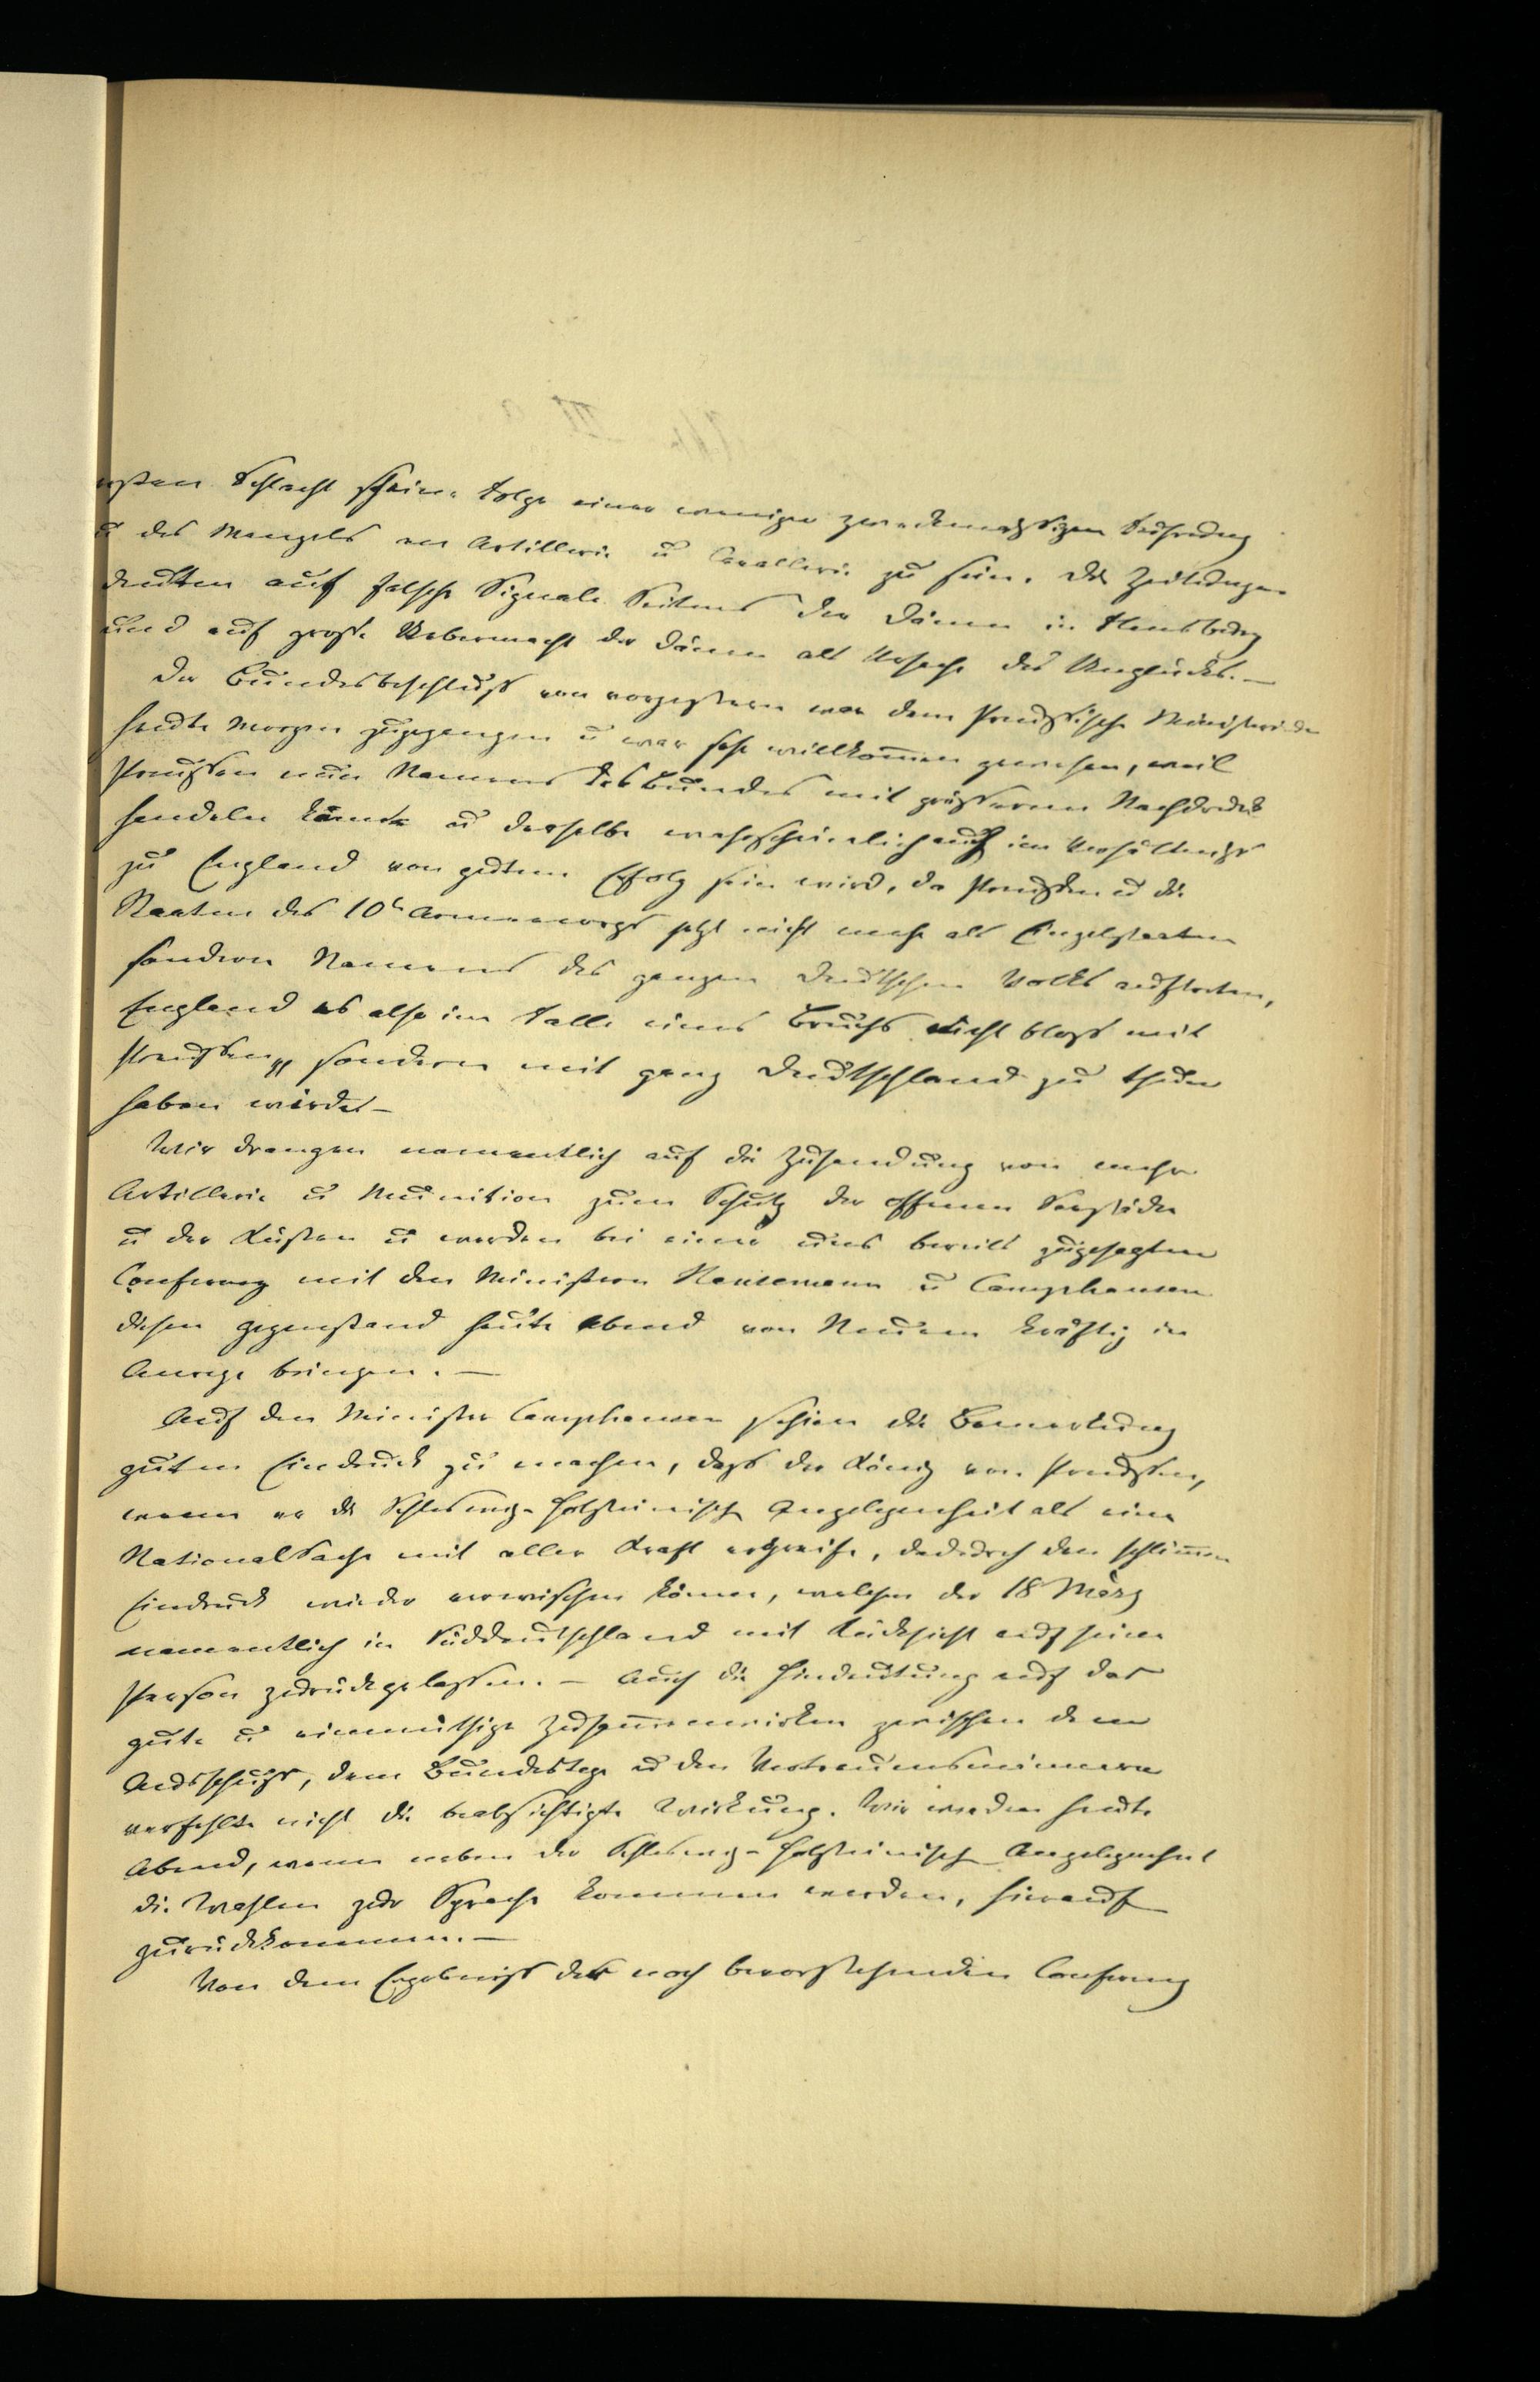 ersten Schlacht scheine Folge einer weniger zweckmäßigen Führung
u des Mangels an Artillerie u Cavallerie zu sein. Die Zeitungen
deuten auf falsche Signale Seitens der Dänen in Flensburg
und auf große Uebermacht der Dänen als Ursache des Unglücks. —
Der Bundesbeschluß von vorgestern war dem Preußischen Ministerium
heute Morgen zugegangen u war sehr willkom̄en gewesen, weil
Preußen nun Namens des Bundes mit größerem Nachdruck
handeln könnte u derselbe wahrscheinlich auch im Verhältniß
zu England von gutem Erfolg sein wird, da Preußen u die
Staaten des 10t Armeecorps jetzt nicht mehr als Einzelstaaten
sondern Namens des ganzen deutschen Volks auftreten,
England es also im Falle eines Bruchs nicht bloß mit
Preußen, sondern mit ganz Deutschland zu thun
haben würde. —
Wir drangen namentlich auf die Zusendung von mehr
Artillerie u Munition zum Schutz der offenen Seestädte
u der Küsten u werden bei einer uns bereits zugesagten
Conferenz mit den Ministern Hansemann u Camphausen
diesen Gegenstand heute Abend von Neuem kräftig in
Anrege bringen. —
Auf den Minister Camphausen schien die Bemerkung
guten Eindruck zu machen, daß der König von Preußen,
wenn er die Schleswig-Holsteinische Angelegenheit als eine
Nationalsache mit aller Kraft ergreife, dadurch den schlim̄en
Eindruck wieder verwischen könne, welchen der 18 März
namentlich in Süddeutschland mit Rücksicht auf seine
Person zurückgelassen. — Auch die Hindeutung auf das
gute u einmüthige Zusam̄enwirken zwischen dem
Ausschuß, dem Bundestage u den Vertrauensmännern
verfehlte nicht die beabsichtigte Wirkung. Wir werden heute
Abend, wenn neben der Schleswig-Holsteinischen Angelegenheit
die Wahlen zur Sprache kommen werden, hierauf
zurückkommen. —
Von dem Ergebniß der noch bevorstehenden Conferenz